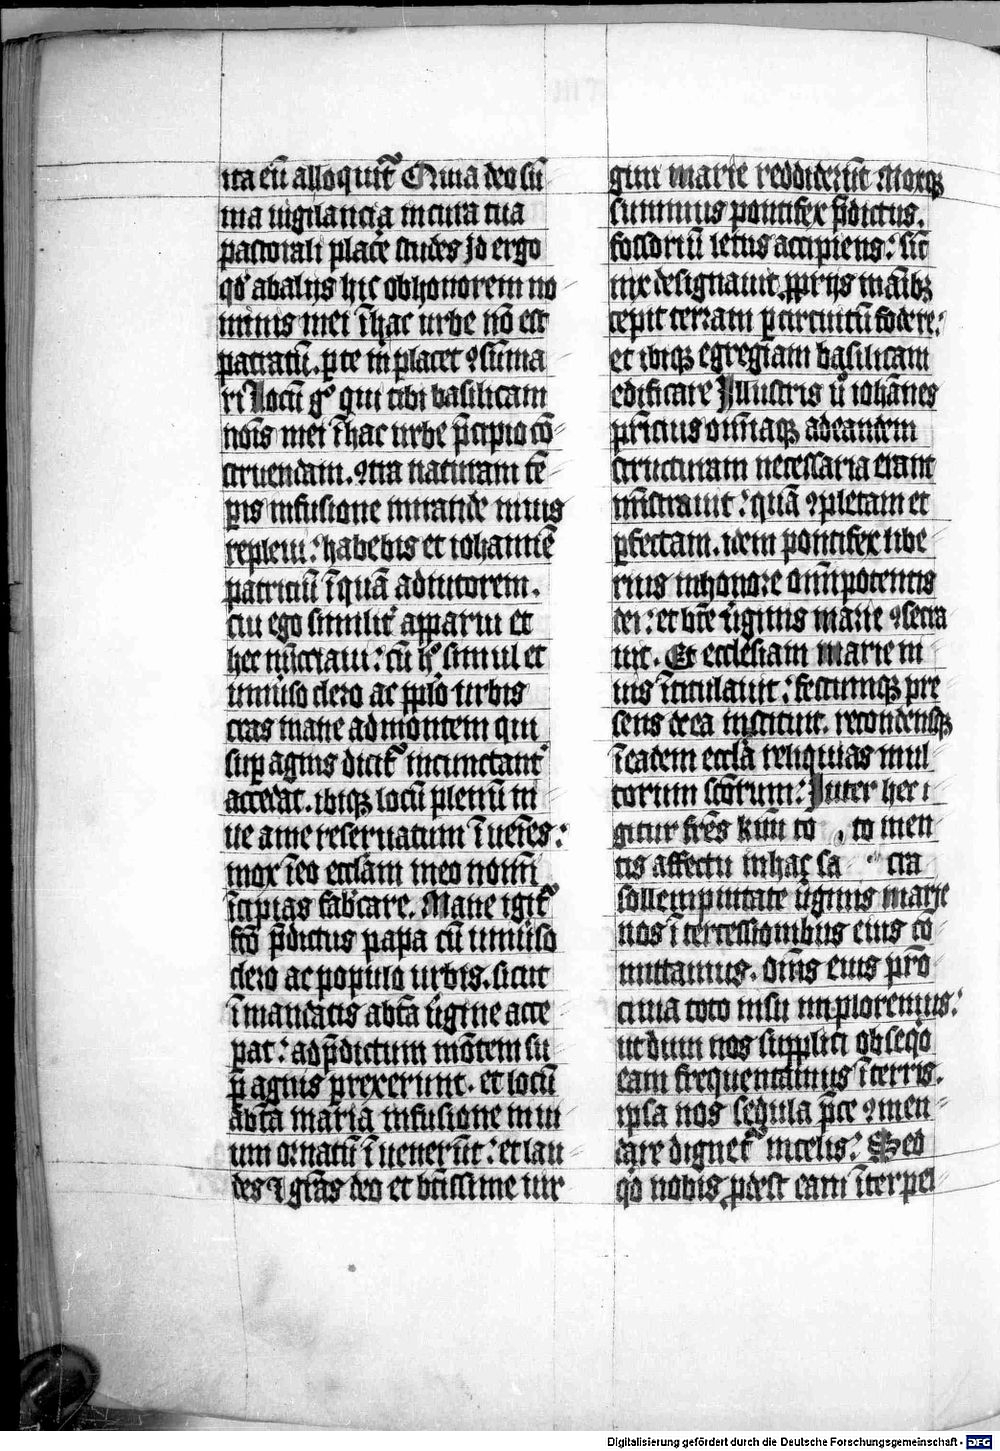 ita eū alloquit᷑ Quia deo sū
ma uigilancia in cura tua
pastorali place᷑ studes Jd ergo
qd᷑ ab alijs hic ob honorem no
minis mei ī hac urbe nō est
patratū. ꝑ te m̄ placet ꝯsūma
ri Locū gͦ qui tibi basilicam
nōis mei ī hac urbe p̄cipio cō
struendam. ꝯtra naturam tē
ꝑis infusione mirande niuis
repleui: habebis et iohannē
patriciū ī quā adiutorem.
cui ego similit᷑ apparui et
hec nūctiaui: cū hͦ simul et
uniūso clero ac ppl̄o urbis
cras mane ad montem qui
suꝑ agius dicit᷑ incunctant᷑
accedat. ibiqꝫ locū plenū ni
ue a me reseruatum ī uēies:
mox ī eo eccl̄am meo nomī
īcipias fab᷑care. Mane igit᷑
fc̄o p̄dictus papa cū uniūso
clero ac populo urbis. sicut
ī mandatis a bt̄a ūgine acce
ꝑat: ad p̄dictum mōtem su
ꝑ agius ꝑrexerunt. et locū
a bt̄a maria infusione niui
um ornatū ī uenerūt: et lau
des ⁊ gr̄as deo et bt̄issime uir
gini marie reddiderūt Moxqꝫ
summus pontifex p̄dictus.
fossoriū letus accipiens: sic̄
nix designauit ꝓprijs māibꝫ
cepit terram ꝑ circuitū fodere:
et ibiqꝫ egregiam basilicam
edificare Jllustris ūͦ iohānes
pr̄icius omīaqꝫ ad eandem
structuram necessaria erant
mīstrauit: quā ꝯpletam et
ꝑfectam. idem pontifex libe
rius in honore omīpotentis
dei: et bt̄e ūginis marie ꝯsecra
uit. Et ecclesiam marie ni
uis ītitulauit: festumqꝫ pre
sens de ea instituit. recondensqꝫ
ī eadem eccl̄a reliquias mul
torum sc̄orum: Jnter hec i
gitur fr̄es kīm̄ to to men
tis affectu in hac sa cra
sollempnitate ūginis marie
nos ī tercessionibus eius cō
mittamus. om̄s eius pr̄o
cinia toto nisu imploremus:
ut dum nos supplici obseqͦ
eam frequentamus ī terris.
ipsa nos sedula p̄ce ꝯmen
dare dignet᷑ in celis: Sed
qͦd nobis ꝓdest eam īterpel
Digitalisierung gefördert durch die Deutsche Forschungsgemeinschaft - DFG